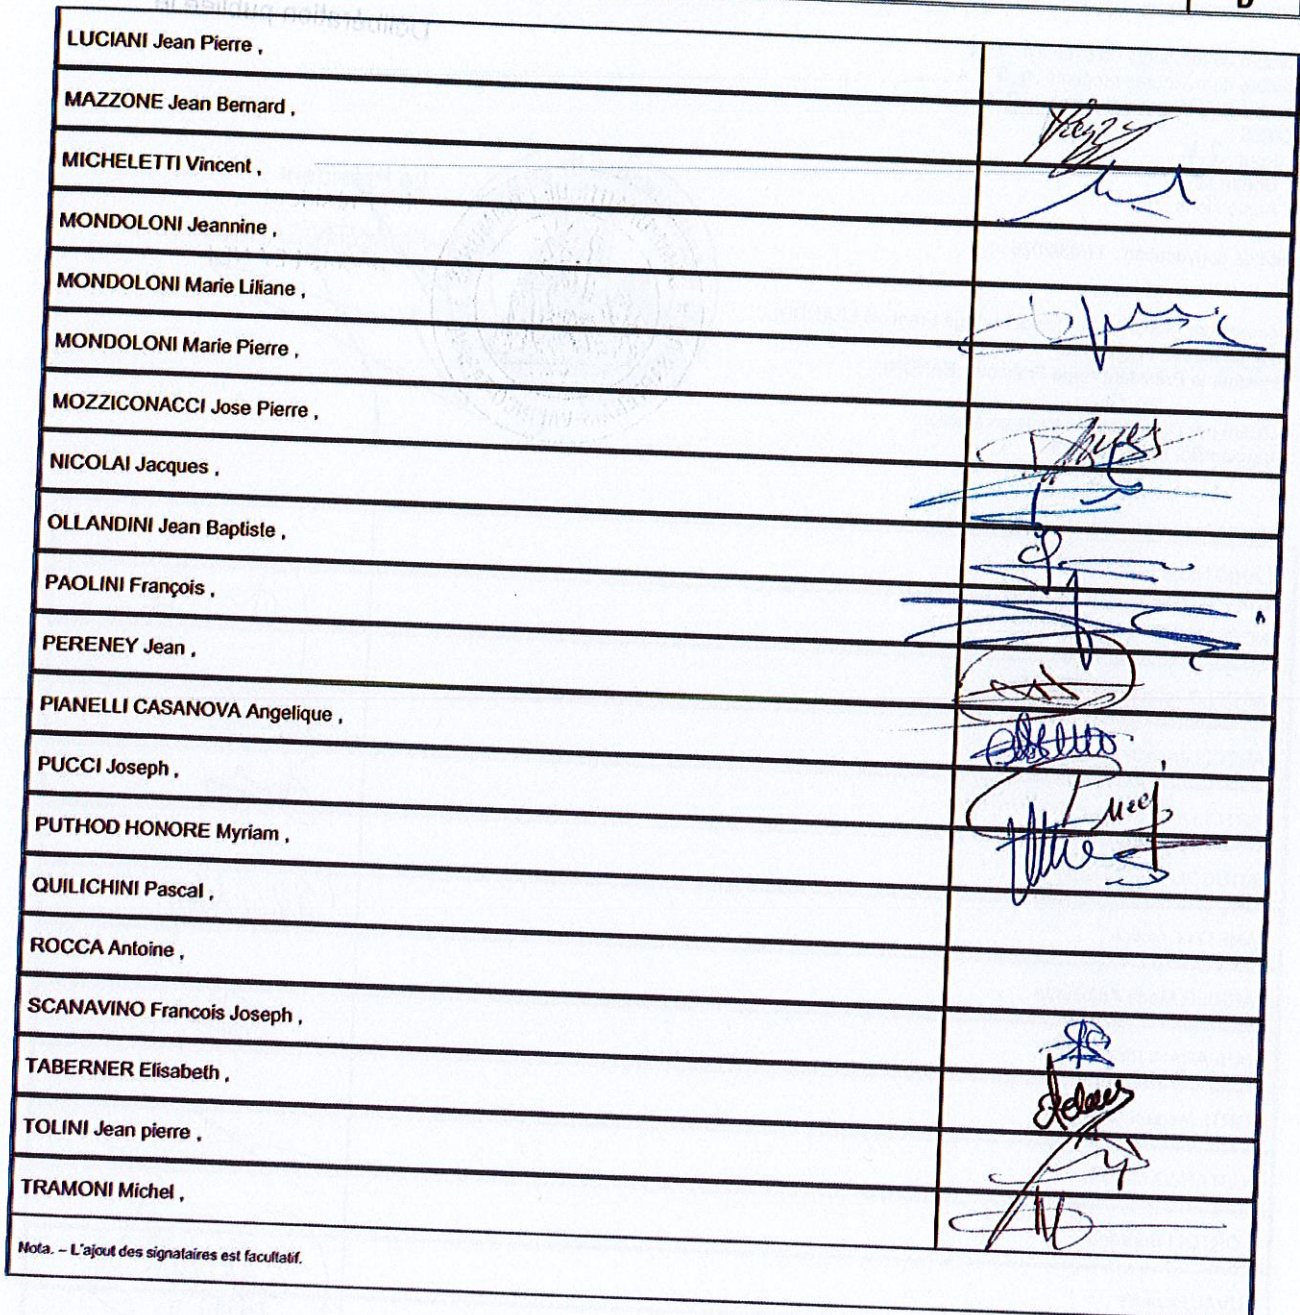 D
LUCIANI Jean Pierre ,
MAZZONE Jean Bernard ,
MICHELETTI Vincent ,
MONDOLONI Jeannine ,
MONDOLONI Marie Liliane ,
MONDOLONI Marie Pierre ,
MOZZICONACCI Jose Pierre ,
NICOLAI Jacques ,
OLLANDINI Jean Baptiste ,
PAOLINI François ,
PERENEY Jean ,
PIANELLI CASANOVA Angelique ,
PUCCI Joseph ,
PUTHOD HONORE Myriam ,
QUILICHINI Pascal ,
ROCCA Antoine ,
SCANAVINO Francois Joseph ,
TABERNER Elisabeth ,
TOLINI Jean pierre ,
TRAMONI Michel ,
Nota. – L'ajout des signataires est facultatif.